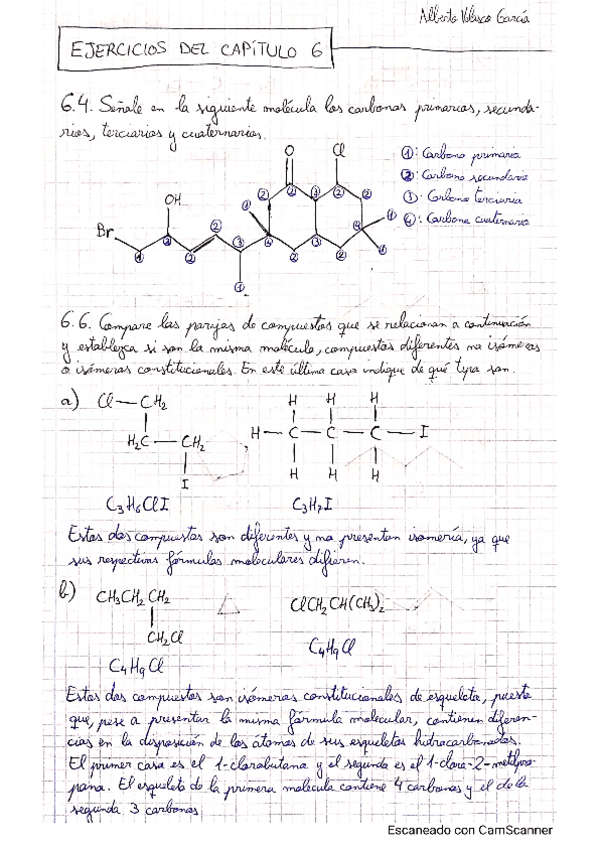 Alberto Velasco García
EJERCICIOS DEL CAPÍTULO 6
6.4. Señale en la siguiente molécula los carbonos primarios, secunda-
rios, terciarios y cuaternarios.
O Cl
OH
Br
1: Carbono primario
2: Carbono secundario
3: Carbono terciario
4: Carbono cuaternario
6.6. Compare las parejas de compuestos que se relacionan a continuación
y establezca si son la misma molécula, compuestos diferentes no isómeros
o isómeros constitucionales. En este último caso indique de qué tipo son.
a) Cl—CH2
H2C—CH2
I
H H H
H—C—C—C—I
H H H
C3H6ClI C3H7I
Estos dos compuestos son diferentes y no presentan isomería, ya que
sus respectivas fórmulas moleculares difieren.
b) CH3CH2CH2
CH2Cl
ClCH2CH(CH3)2
C4H9Cl C4H9Cl
Estos dos compuestos son isómeros constitucionales de esqueleto, puesto
que, pese a presentar la misma fórmula molecular, contienen diferen-
cias en la disposición de los átomos de sus esqueletos hidrocarbonados.
El primer caso es el 1-clorobutano y el segundo es el 1-cloro-2-metilpro-
pano. El esqueleto de la primera molécula contiene 4 carbonos y el de la
segunda 3 carbonos
Escaneado con CamScanner